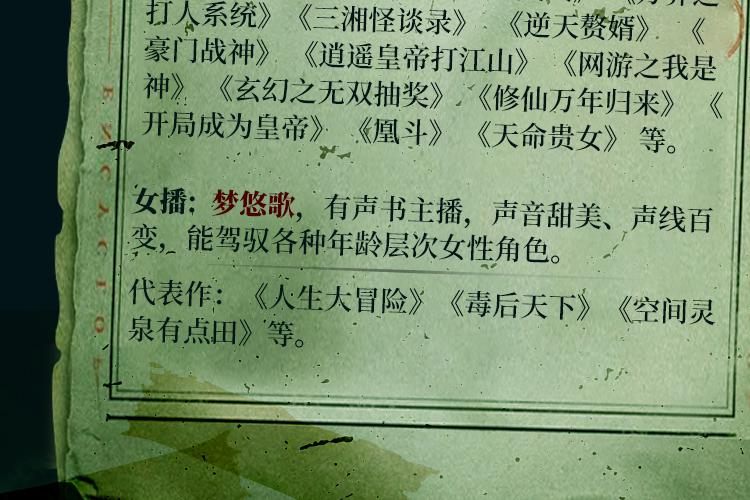 打人系统》《三湘怪谈录》 《逆天赘婿》 《
豪门战神》 《逍遥皇帝打江山》 《网游之我是
神》 《玄幻之无双抽奖》 《修仙万年归来》 《
开局成为皇帝》 《凰斗》 《天命贵女》 等。
女播：梦悠歌，有声书主播，声音甜美、声线百
变，能驾驭各种年龄层次女性角色。
代表作： 《人生大冒险》《毒后天下》 《空间灵
泉有点田》等。